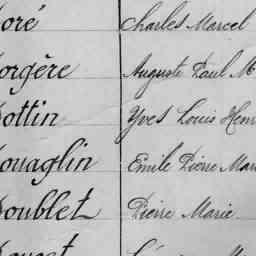 oré Charles Marcel
orgère Auguste Paul M
ottin Yves Louis Henr
ouaglin Emile Pierre Mar
Doublet Pierre Marie